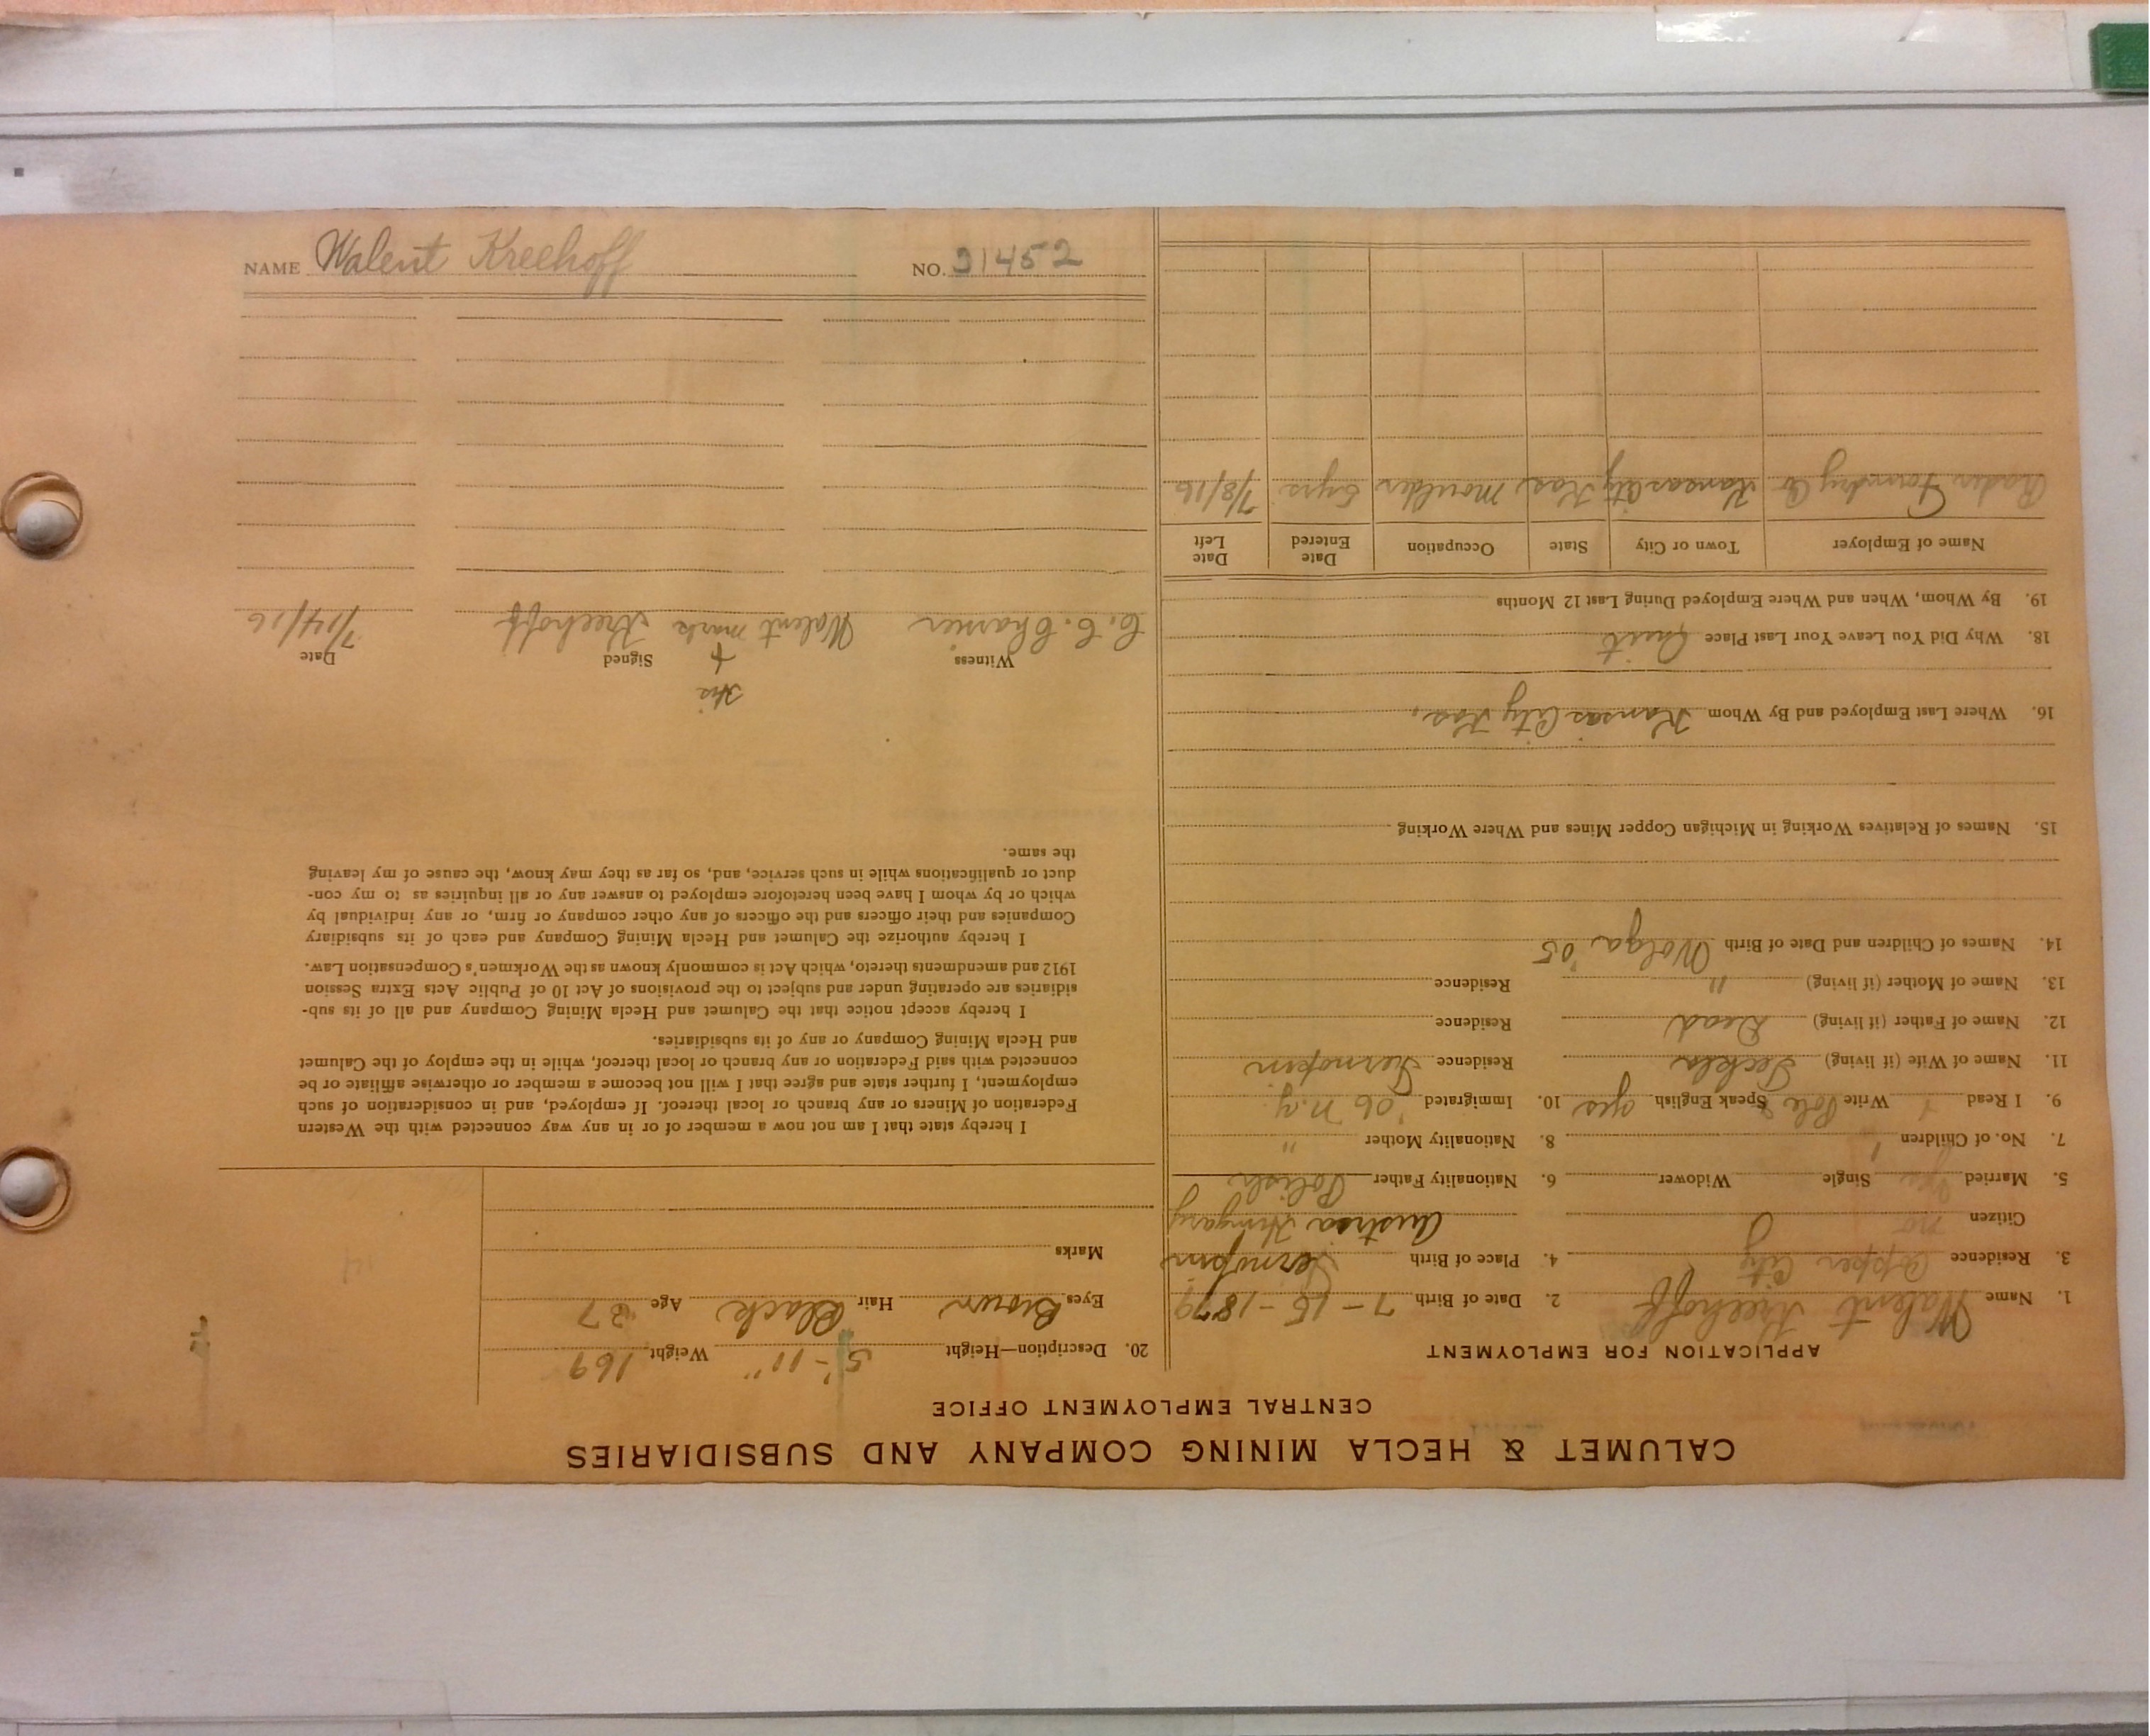 CALUMET & HECLA MINING COMPANY AND SUBSIDIARIES
CENTRAL EMPLOYMENT OFFICE
APPLICATION FOR EMPLOYMENT
1. Name Walent Kreehoff 2. Date of Birth 7-15-1879
3. Residence Copper City 4. Place of Birth Ternopin
Citizen no Austria Hungary
5. Married Yes Single Widower 6. Nationality Father Polish
7. No. of Children 1 8. Nationality Mother "
9. I Read Write Pole Speak English yes 10. Immigrated '06 N.Y.
11. Name of Wife (if living) Teckla Residence Ternopin
12. Name of Father (if living) Dead Residence
13. Name of Mother (if living) " Residence
14. Names of Children and Date of Birth Wolga '05
15. Names of Relatives Working in Michigan Copper Mines and Where Working
16. Where Last Employed and By Whom Kansas City Kas,
18. Why Did You Leave Your Last Place Quit
19. By Whom, When and Where Employed During Last 12 Months
Name of Employer Town or City State Occupation Date Entered Date Left
Foundry Co Kansas City Kas Moulder 6yrs 7/8/16
20. Description—Height 5'-11" Weight 169
Eyes Brown Hair Black Age 37
Marks
I hereby state that I am not now a member of or in any way connected with the Western
Federation of Miners or any branch or local thereof. If employed, and in consideration of such
employment, I further state and agree that I will not become a member or otherwise affiliate or be
connected with said Federation or any branch or local thereof, while in the employ of the Calumet
and Hecla Mining Company or any of its subsidiaries.
I hereby accept notice that the Calumet and Hecla Mining Company and all of its sub-
sidiaries are operating under and subject to the provisions of Act 10 of Public Acts Extra Session
1912 and amendments thereto, which Act is commonly known as the Workmen's Compensation Law.
I hereby authorize the Calumet and Hecla Mining Company and each of its subsidiary
Companies and their officers and the officers of any other company or firm, or any individual by
which or by whom I have been heretofore employed to answer any or all inquiries as to my con-
duct or qualifications while in such service, and, so far as they may know, the cause of my leaving
the same.
His
Witness + Signed Date
C. C. Charner Walent mark Kreehoff 7/14/16
NAME Walent Kreehoff NO. 31452